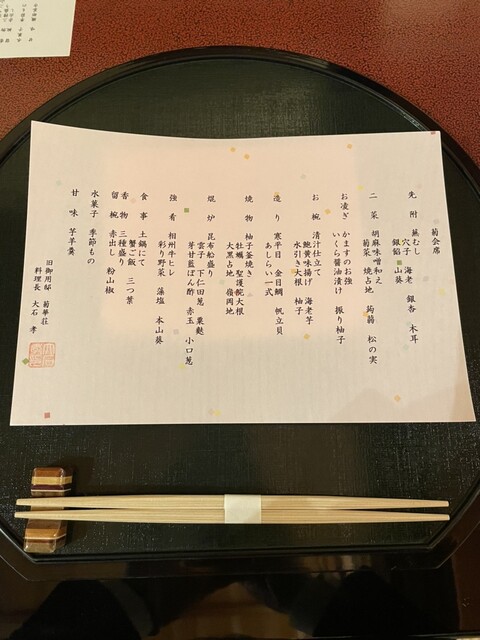 菊会席
先附 蕪むし
穴子 海老 銀杏 木耳
銀餡 山葵
二菜 胡麻味噌和え
菊菜 焼占地 蒟蒻 松の実
お凌ぎ かますのお強
いくら醤油漬け 振り柚子
お椀 清汁仕立て
鮑黄味揚げ 海老芋
水引き大根 柚子
造り 寒平目 金目鯛 帆立貝
あしらい一式
焼物 柚子釜焼き
牡蠣 聖護院大根
大黒占地 嶺岡地
焜炉 昆布船盛り
雲子 下仁田葱 粟麩
芽甘藍ぽん酢 赤玉 小口葱
強肴 相州牛ヒレ
彩り野菜 藻塩 本山葵
食事 土鍋にて
蟹ご飯 三つ葉
香物 三種盛り
留椀 赤出し 粉山椒
水菓子 季節もの
甘味 芋羊羹
旧御用邸 菊華荘
料理長 大石 孝